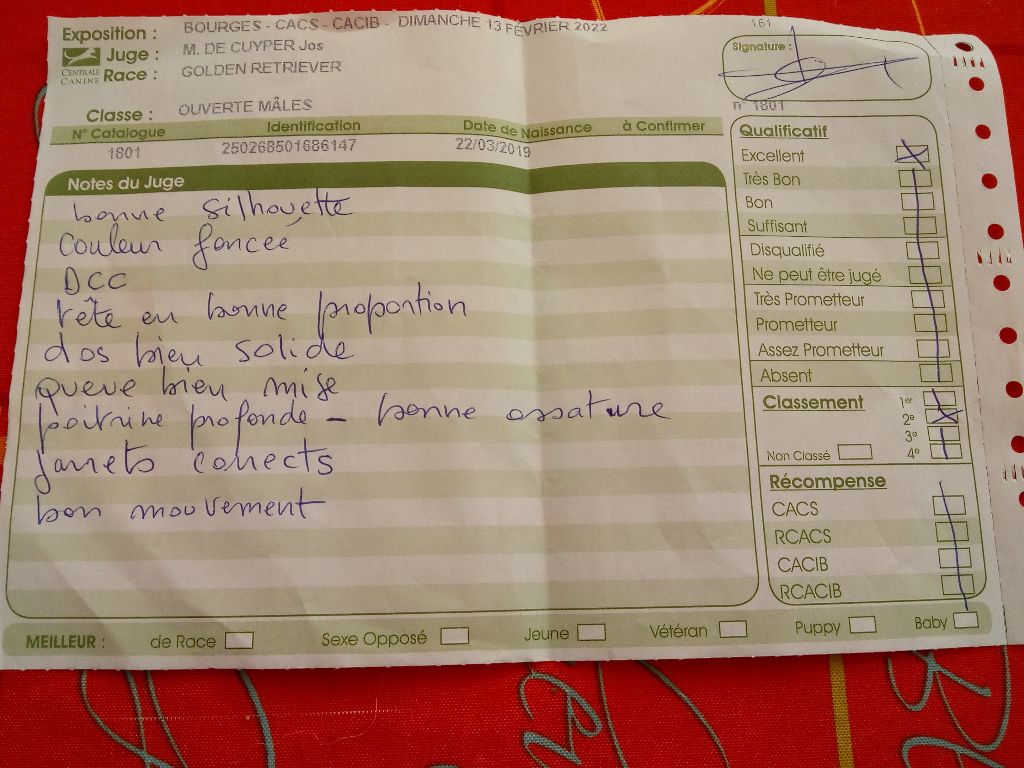 161
Exposition : BOURGES - CACS - CACIB - DIMANCHE 13 FÉVRIER 2022
Juge : M. DE CUYPER Jos
CENTRALE CANINE
Race : GOLDEN RETRIEVER
Signature :
Classe : OUVERTE MÂLES
n° 1801
N° Catalogue Identification Date de Naissance à Confirmer
1801 250268501686147 22/03/2019
Notes du Juge
bonne silhouette
couleur foncée
DCC
tête en bonne proportion
dos bien solide
queue bien mise
poitrine profonde - bonne ossature
jarrets corrects
bon mouvement
Qualificatif
Excellent
Très Bon
Bon
Suffisant
Disqualifié
Ne peut être jugé
Très Prometteur
Prometteur
Assez Prometteur
Absent
Classement
1er
2e
3e
4e
Non Classé
Récompense
CACS
RCACS
CACIB
RCACIB
MEILLEUR : de Race Sexe Opposé Jeune Vétéran Puppy Baby